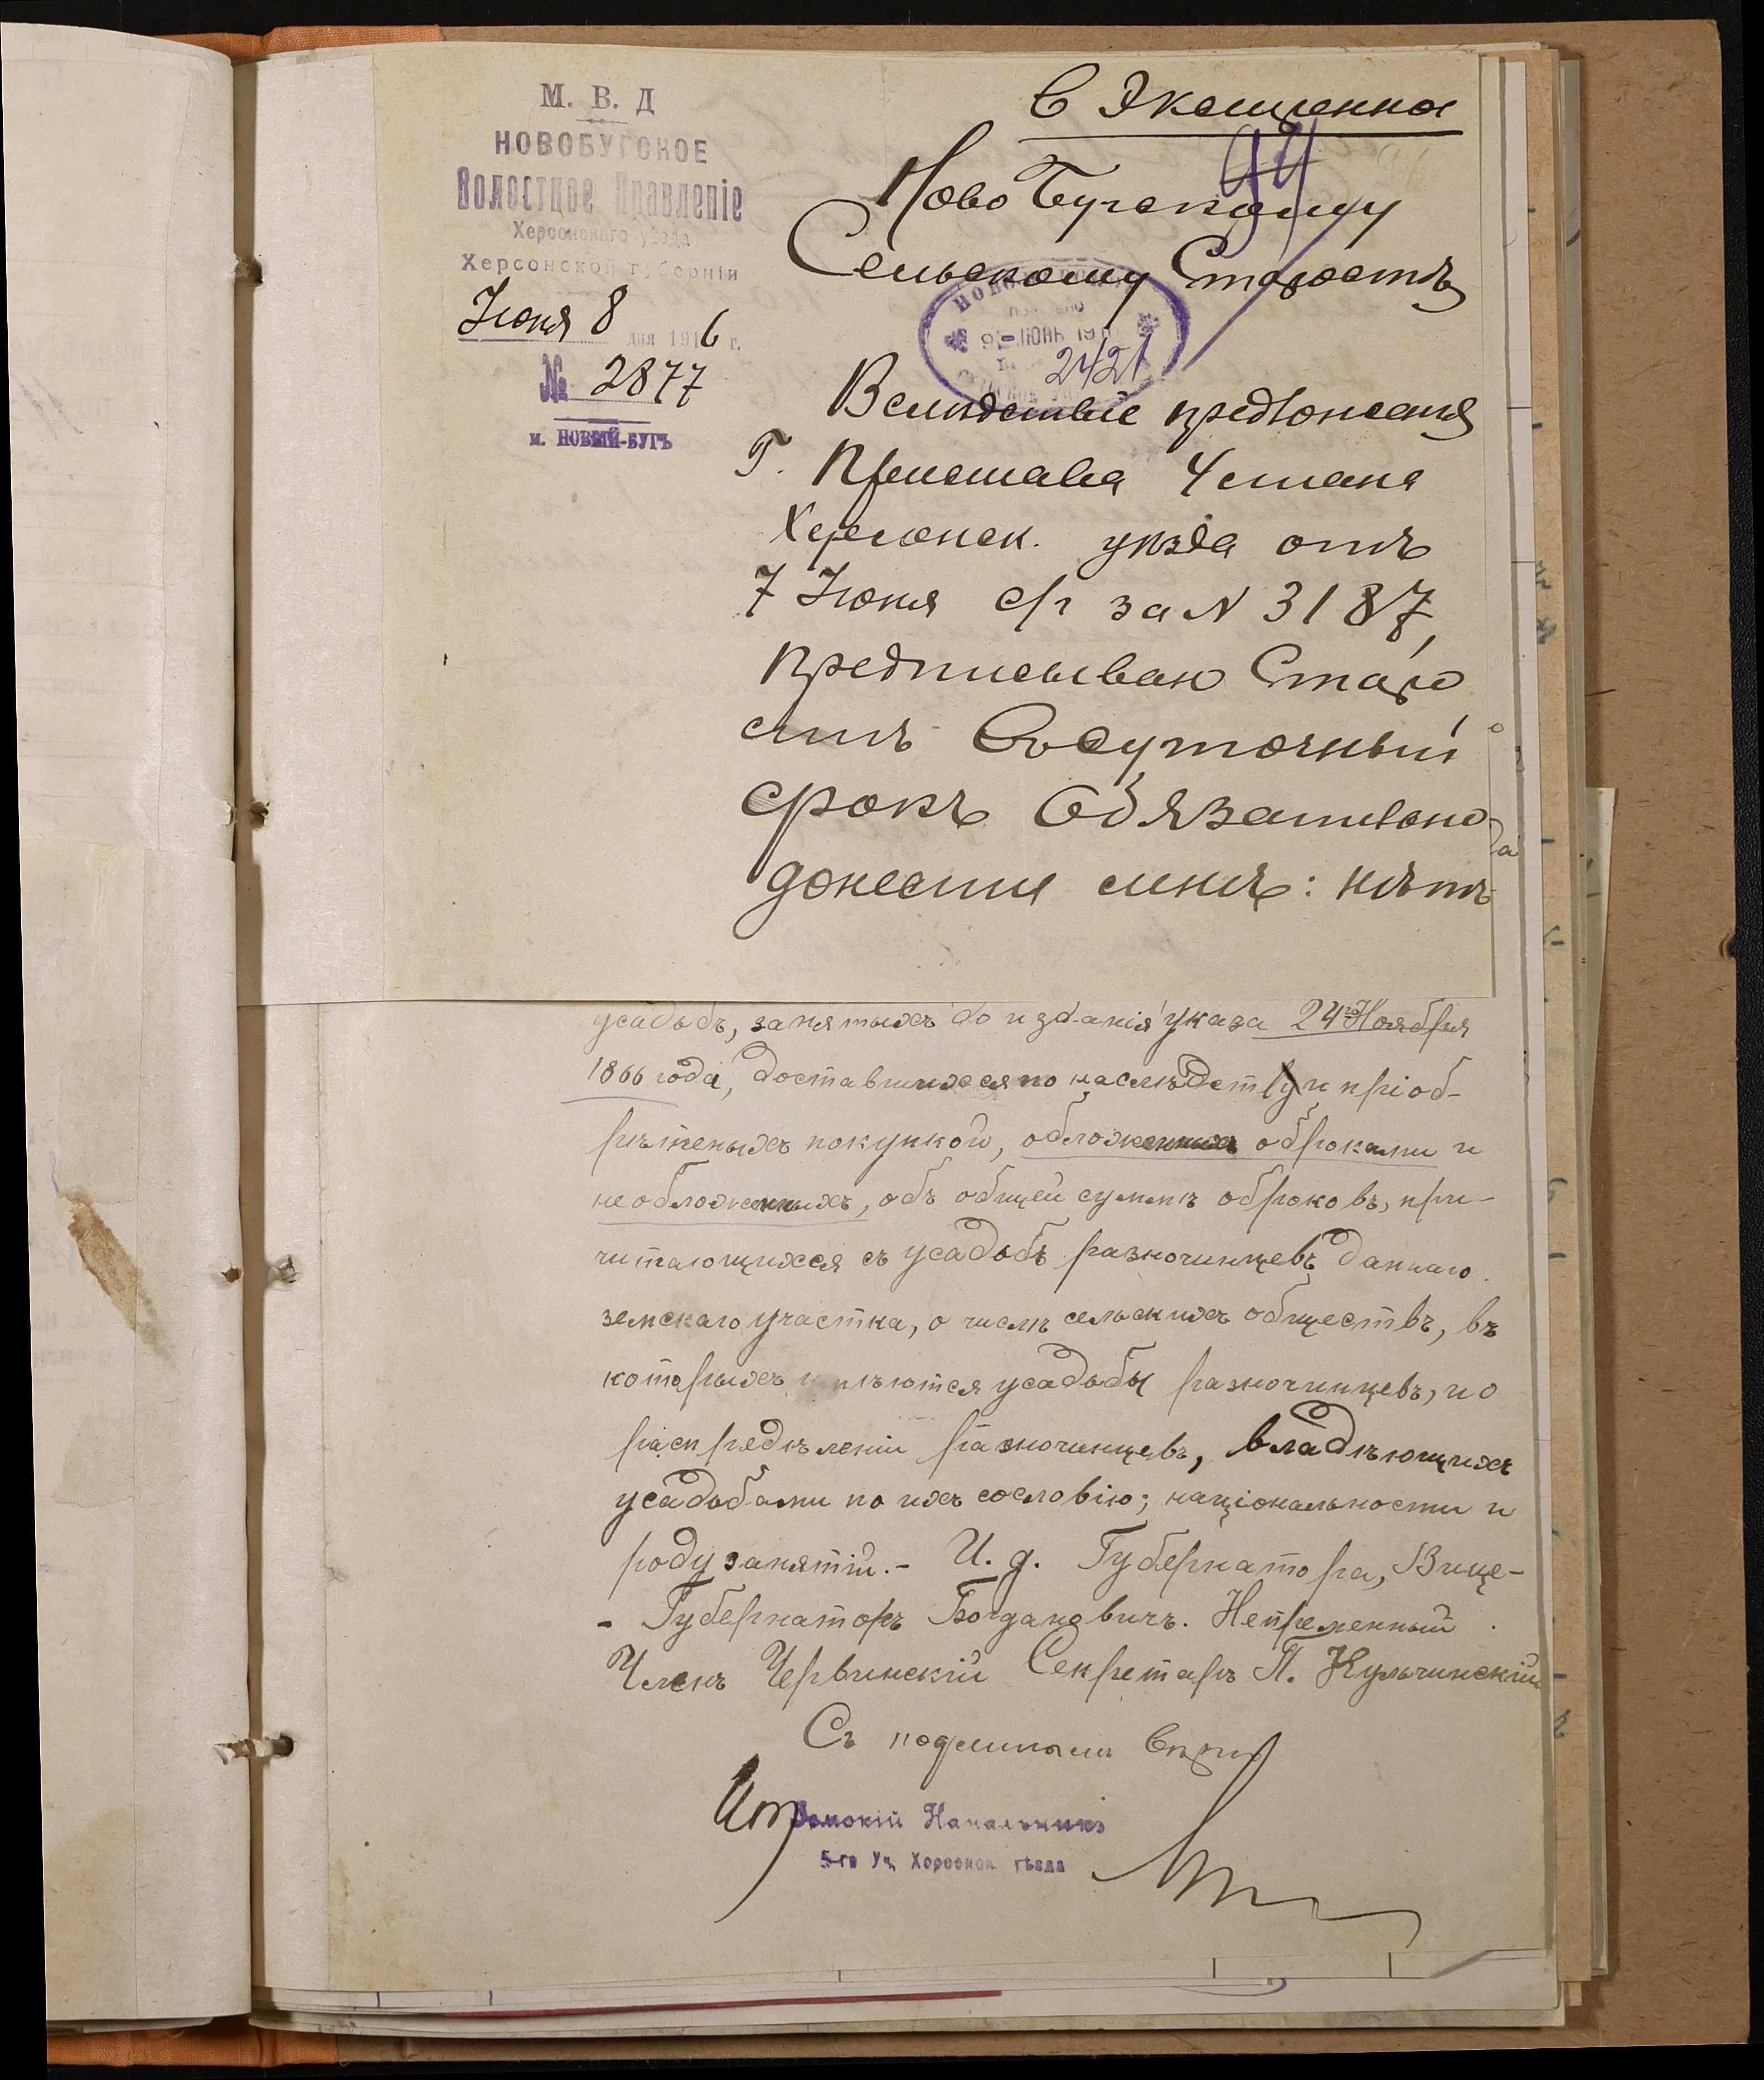 М. В. Д
НОВОБУГСКОЕ
Волостное Правленіе
Херсонскаго уѣзда
Херсонской губерніи
Іюня 8 дня 1916 г.
№ 2877
м. НОВЫЙ-БУГЪ
94
Ново Бугскому
Сельскому Старостѣ
2421
Вслѣдствіе предложенія
Г. Пристава 4 стана
Херсонск. уѣзда отъ
7 Іюня с/г за N 3187,
предписываю Старо
стѣ Восуточный
срокъ Обязательно
донести мнѣ: нѣтъ
усадьбъ, занятыхъ до изданія указа 24го Ноября
1866 года, доставшихся по наслѣдству и пріоб-
рѣтеныхъ покупкой, обложенныхъ оброками и
необложенныхъ, объ общей суммѣ оброковъ, при-
читающихся съ усадьбъ разночинцевъ даннаго
земскаго участка, о числѣ сельскихъ обществъ, въ
которыхъ имѣются усадьбы разночинцевъ, и о
распредѣленіи разночинцевъ, владѣющихъ
усадьбами по ихъ сословію; національности и
роду занятій.- И. д. Губернатора, Вице-
- Губернаторъ Богдановичъ. Непременный
Членъ Червинскій Секретарь П. Кульчинскій
Съ подлиннымъ вѣрно
Земскій Начальникъ
5-го Уч. Херсонск. уѣзда